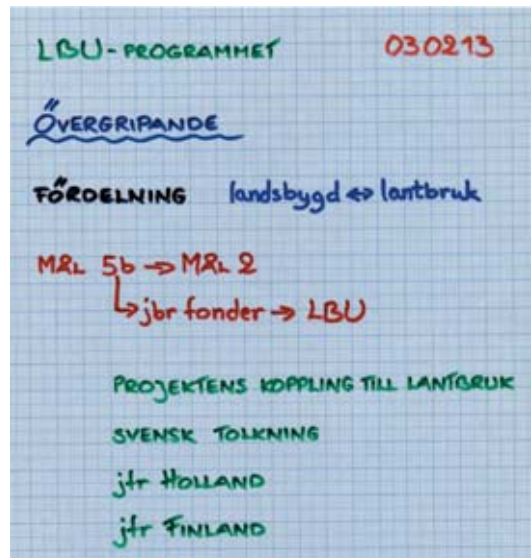 LBU-PROGRAMMET 030213
ÖVERGRIPANDE
FÖRDELNING landsbygd ↔ lantbruk
MÅL 5b → MÅL 2
↳ jbr fonder → LBU
PROJEKTENS KOPPLING TILL LANTBRUK
SVENSK TOLKNING
jfr HOLLAND
jfr FINLAND